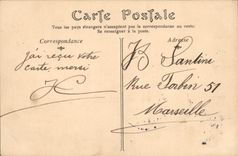 Carte Postale
Tous les pays étrangers n'acceptent pas la correspondance au recto.
Se renseigner à la poste.
Correspondance
Adresse
J'ai reçu votre
carte, merci
Santini
Rue Fortin 51
Marseille